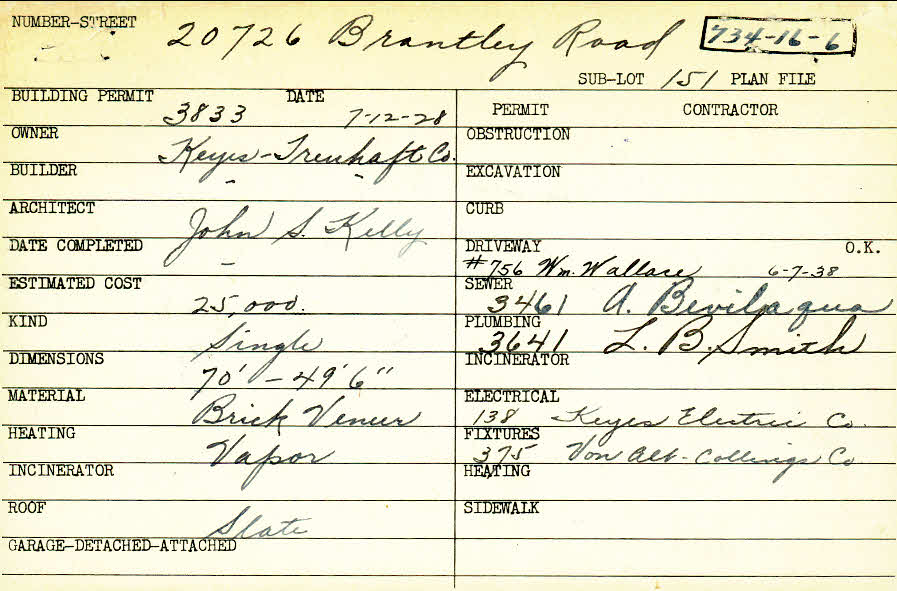 NUMBER-STREET 20726 Brantley Road 734-16-6
SUB-LOT 151 PLAN FILE
BUILDING PERMIT 3833 DATE 7-12-28
OWNER Keyes-Treuhaft Co.
BUILDER " "
ARCHITECT John S. Kelly
DATE COMPLETED –
ESTIMATED COST 25,000.
KIND Single
DIMENSIONS 70' – 49' 6"
MATERIAL Brick Veneer
HEATING Vapor
INCINERATOR
ROOF Slate
GARAGE-DETACHED-ATTACHED
PERMIT CONTRACTOR
OBSTRUCTION
EXCAVATION
CURB
DRIVEWAY O.K.
#756 Wm. Wallace 6-7-38
SEWER
3461 A. Bevilaqua
PLUMBING
3641 L. B. Smith
INCINERATOR
ELECTRICAL
138 Keyes Electric Co.
FIXTURES
375 Von Alt-Collings Co
HEATING
SIDEWALK